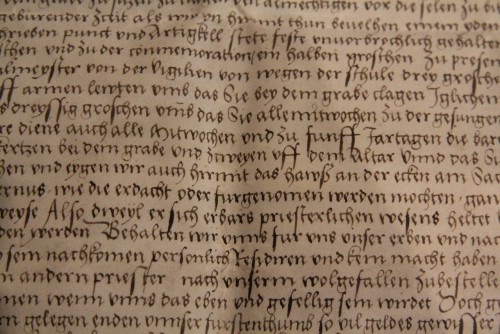 almechtigen vor die selen zu
geburender Zceit als wir yn hirmit thun bevelhen einem yden
hrieben punct und Artigkell stete feste unvorbrochlich gehalten
schen und zu der commemoration ein halben groschen Zu presen
almeyster von der Vigilien von wegen der schule drey grosche
uff armen lewten unns das Sie bey dem grabe clagen Iglichen
s dreyssig groschen unns das Sie alle mitwochen zu der gesungen
re diene auch alle Mitwochen und Zu funff Jartagen die bare
kertzen bei dem grabe und Zcweyen uff dem Altar Unnd das Si
hen und eygen wir auch hirmit das hawß an der ecken am Sac
ernus wie die erdacht oder furgenomen werden mochten gan
weyse Also dweyl er sich erbars priesterlichen wesens heltet
den werden Behalten wir unns fur uns unser erben und nac
o sein nachkomen personlich Residiren und kein macht haben
m andern priester nach unserm wolgefallen Zubestelle
men wenn unns das eben und gefellig sein wirdet Doch g
rn gelegen enden unnser furstenthumb so vil geldes gewisser